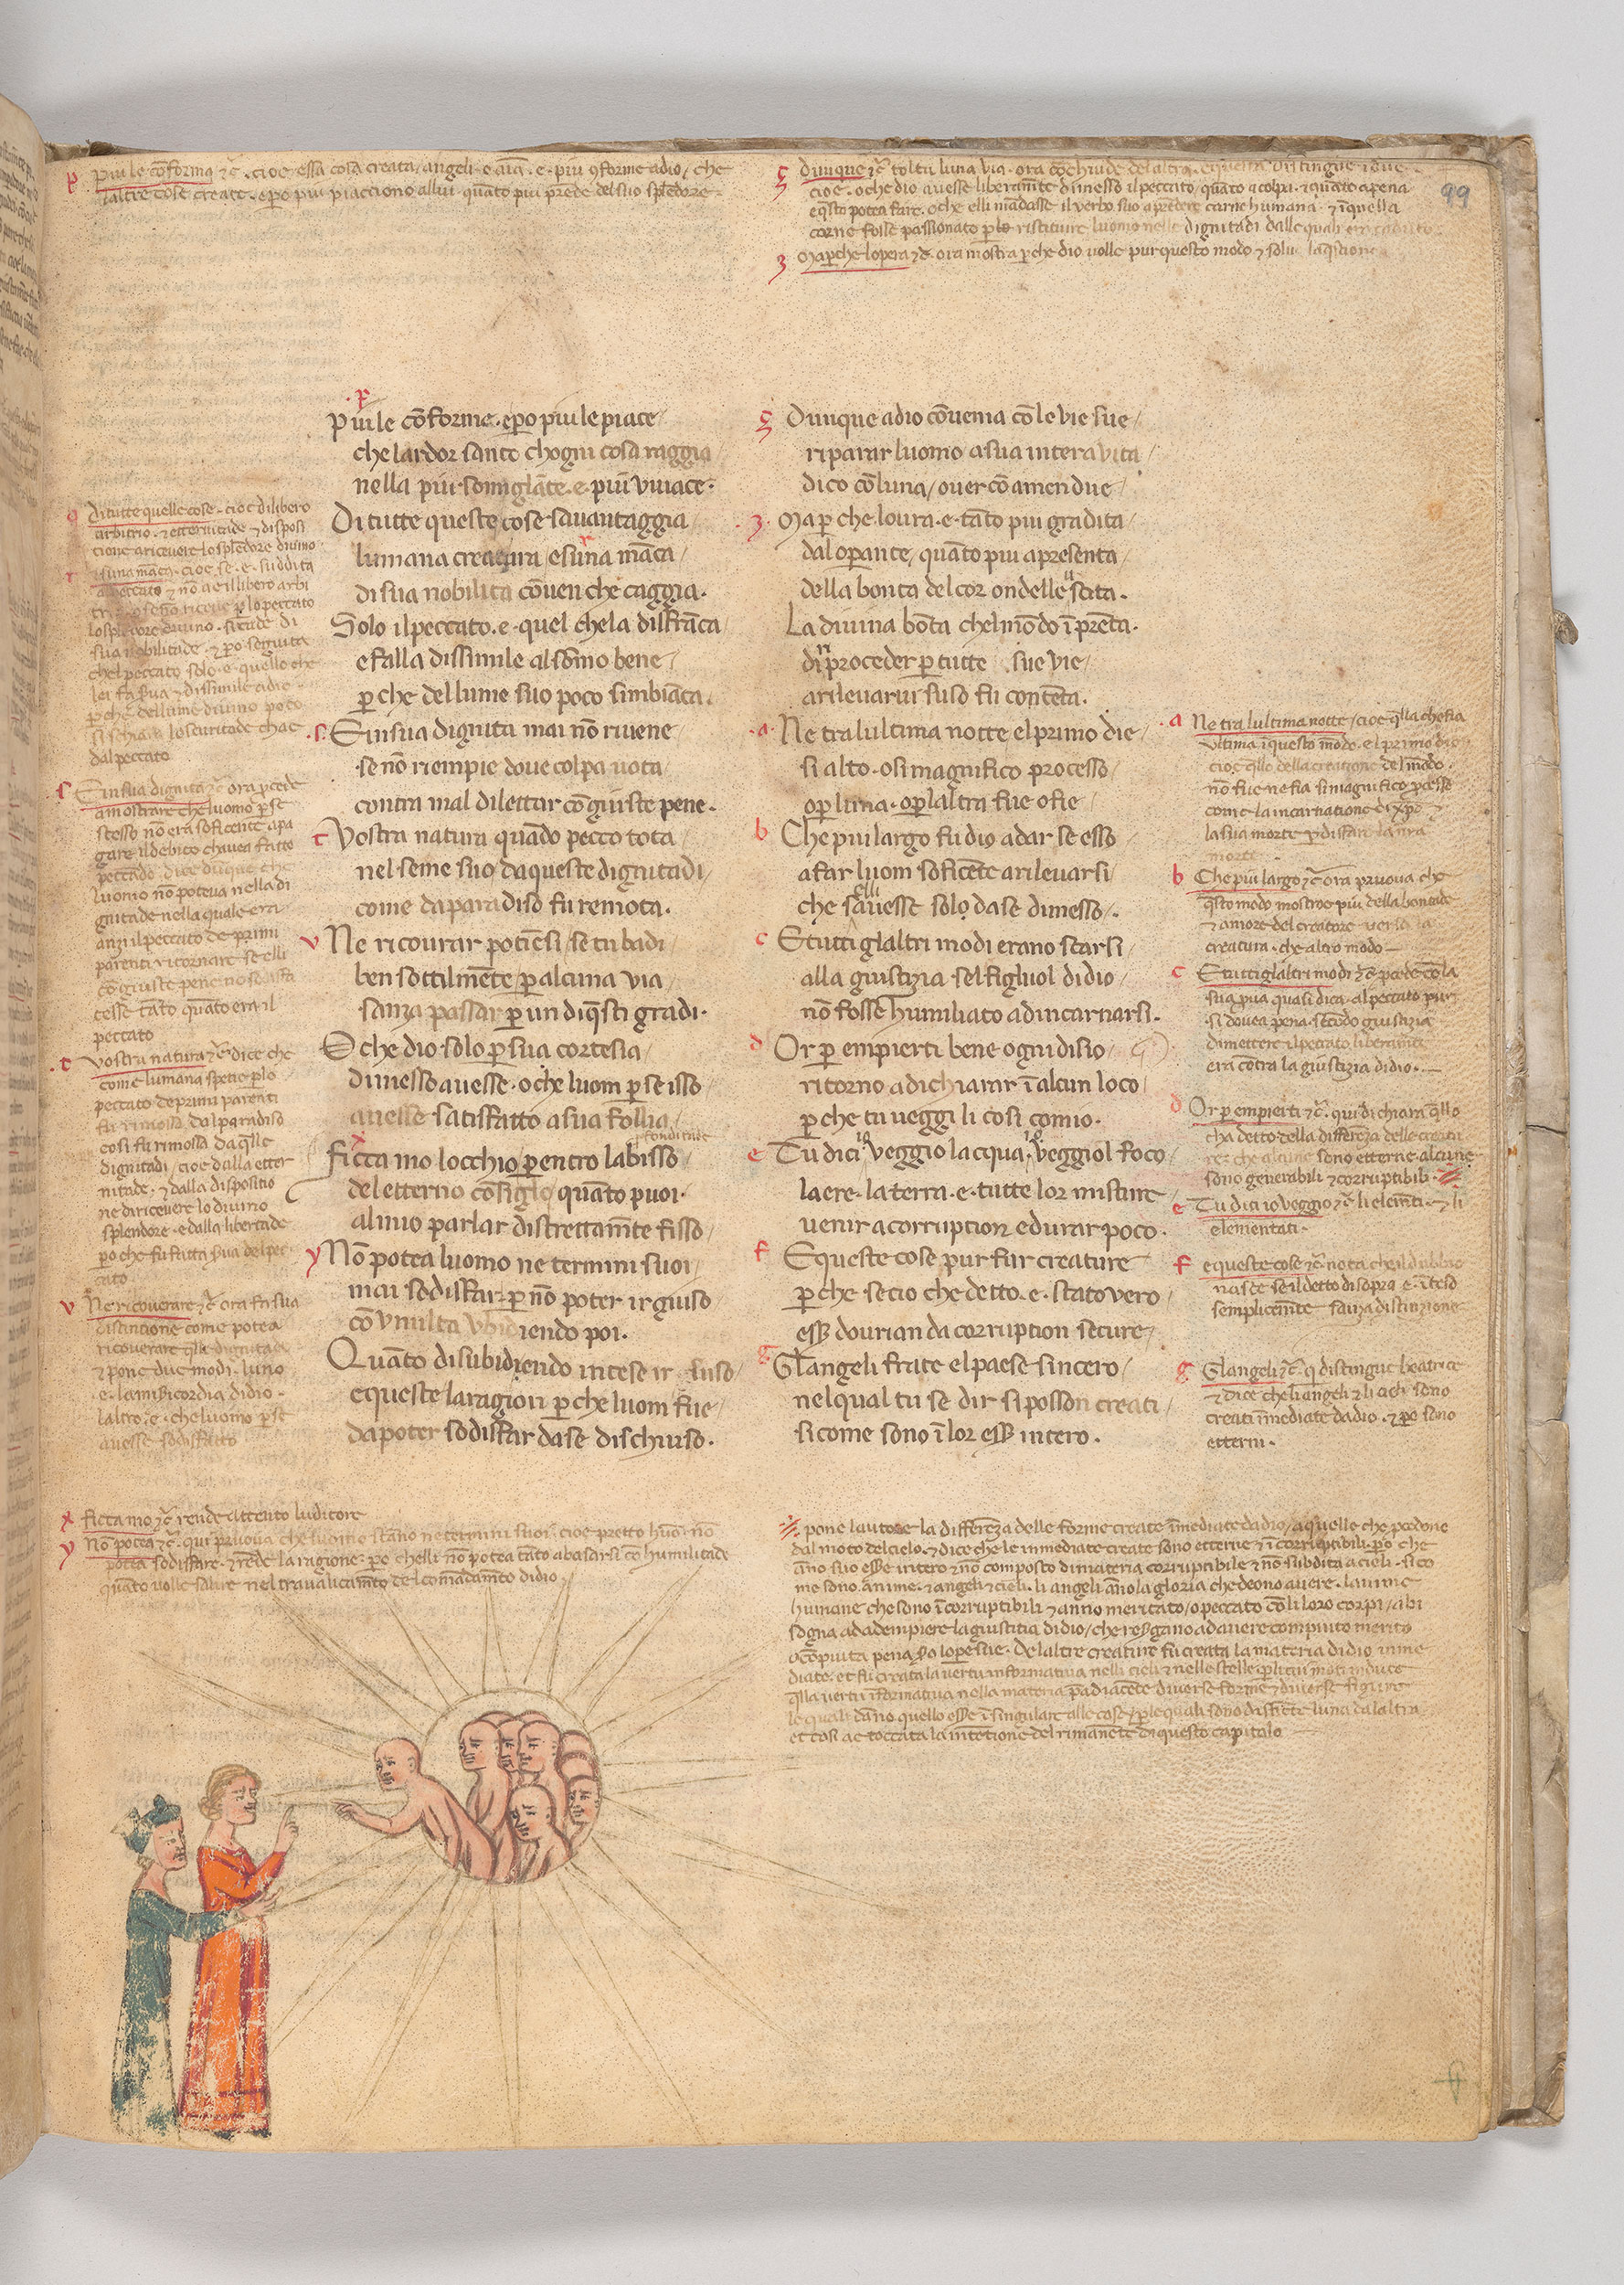 p più le cōforma ⁊c̄ .cioe essa cosa creata / angeli .e aīa .e. piu 9forme adio / che
laltre cose create .epero piu piacciono allui .quāto piu prēde del suo splēdore
ꝯ dunque ⁊c̄ tolta luna via .ora cōchiude delaltra
cioe .oche dio auesse liberamēte dimesso il peccato / quāto a colpa .⁊quāto apena
eq̄sto potea fare .oche elli mādasse il verbo suo aprēdere carne humana .⁊ īquella
carne fosse passionato per lo ristituire luomo nelle dignitadi dalle quali era caduto
3 Maperche lopera ⁊c̄ .ora mostra perche dio volle pur questo modo ⁊ solue la q̄stione
99
p
Piu le cōforme .epero piu le piace /
che lardor santo chogni cosa raggia
nella piu somiglāte .e. piu viuace .
Di tutte queste cose sauantaggia
lumana creatura / esuna māca /
di sua nobilita cōuen che caggia .
Solo il peccato .e. quel chela disfrāca /
e falla dissimile al sōmo bene /
per che del lume suo poco simbiāca .
s Einsua dignita mai nō riuene
se nō riempie doue colpa uota
contra mal dilettar cō giuste pene .
t Vostra natura quādo pecco tota
nel seme suo daqueste dignitadi /
come da paradiso fu remota .
v Ne ricourar potiensi / se tu badi
ben sottilmēte per alcuna via /
sanza passar per un diq̄sti gradi .
O che dio solo per sua cortesia /
dimesso auesse .oche luom per se isso
auesse satisfatto asua follia /
x
Ficca mo locchio per entro labisso
del etterno cōsiglo quāto puoi .
al mio parlar distrettamēte fisso /
y Nō potea luomo ne termini suoi
mai sodisfar per nō poter ir giuso
cō vmilta vbidiendo poi .
Quāto disubidiendo intese ir suso
e queste la ragion per che luom fue /
da poter sodisfar da se dischiuso .
ꝯ Dunque adio cōuenia cō le vie sue
riparar luomo asua intera vita
dico cō luna / ouer cō amendue
3 Ma per che loura .e. tāto piu gradita
dal operante / quāto piu apresenta
della bonta del cor ondelle uscita .
La diuina bōta chel mōdo īprēta .
di proceder per tutte sue vie
a rileuarui suso fu contēta .
a Ne tra lultima notte el primo die
si alto .osi magnifico processo
o per luna .o per laltra fue ofie
b Che piu largo fu dio adar se esso
a far luom soficēte arileuarsi
che selli auesse solo da se dimesso .
c E tutti glaltri modi erano scarsi
alla giustizia sel figluol didio
nō fosse humiliato ad incarnarsi .
d Or per empierti bene ogni disio
ritorno a dichiarar ī alcun loco
per che tu ueggi li cosi comio .
e Tu dici io veggio lacqua .io veggiol foco
laere .la terra .e. tutte lor misture
venir a corruption e durar poco .
f E queste cose pur fur creature
per che se cio che detto .e. stato vero
esser dourian da corruption secure /
g Glangeli frate el paese sincero
nel qual tu se dir si posson creati
si come sono ī lor esser intero .
q Di tutte quelle cose .cioe di libero
arbitrio .⁊ etternitade ⁊ disposi
cione a riceuere lo splēdore diuino
r esuna māca .cioe .se .e. suddita
al peccato ⁊ nō a e il libero arbi
lo splēdore diuino
sua nobilitade .⁊ pero seguita
chel peccato solo .e. quello che
lei fa ⁊ dissimile a dio
perche dellume diuino poco
si schiara
dal peccato
s Einsua dignita ⁊c̄ ora procede
amostrare che luomo per se
stesso nō era soficente apa
gare il debito chauea fatto
peccādo .dice dūque che
luomo nō poteua nella di
gnitade nella quale era
anzi il peccato de primi
parenti ritornare se elli
cō giuste pene nō sodisfa
cesse tāto quāto era il
peccato
t Vostra natura ⁊c̄ dice che
come lumana spetie per lo
peccato de primi parenti
fu rimossa dal paradiso
cosi fu rimossa da q̄lle
dignitadi / cioe dalla etter
nitade .⁊ dalla dispositio
ne di riceuere lo diuino
splendore .e dalla libertade
pero che fu fatta serua del pec
cato
v Ne ricouerare ⁊c̄ ora fa sua
distintione come potea
ricouerare q̄lle dignitadi
⁊ pone due modi .luno
.e. la misericordia didio .
laltro .e. che luomo per se
auesse sodisfatto
a Ne tra lultima notte / cioe q̄lla che fia
vltima ī questo mōdo .el primo die
cioe q̄llo della creatione del mōdo .
nō fue ne fia si magnifico processo
come la incarnatione di xpo ⁊
la sua morte per disfare la nra
morte .
b Che piu largo ⁊c̄ ora pruoua che
q̄sto modo mostroe piu della bontade
⁊ amore del creatore verso la
creatura .che altro modo
c E tutti glaltri modi ⁊c̄ procede cō la
sua pua quasi dica .al peccato pur
si douea pena .secōdo giustizia
dimettere il peccato liberamēte
era cōtra la giustizia didio .
d Or per empierti ⁊c̄ .qui dichiara q̄llo
cha detto della differēza delle creatu
re .che alcune sono etterne .alcune
sono generabili ⁊ corruptibili .
e Tu dici io veggio ⁊c̄ li elemēti .⁊ li
elementati .
f e queste cose ⁊c̄ nota che il dubbio
nasce se il detto di sopra .e. īteso
semplicemēte sanza distinzione
g Glangeli ⁊c̄ q̄ distingue beatrice
⁊ dice che li angeli ⁊ li cieli sono
creati īmediate da dio .⁊ pero sono
etterni .
x ficca mo ⁊c̄ rende attento luditore
y Nō potea ⁊c̄ .qui pruoua che luomo stādo ne termini suoi .cioe pretto huō .nō
potea sodisfare .⁊ rēde la ragione .pero chelli nō potea tāto abasarsi cō humilitade
quāto volle salire nel traualicamēto del comādamēto didio .
pone lautore la differēza delle forme create īmediate da dio / a quelle che procedono
dal moto del cielo .⁊ dice che le inmediate create sono etterne ⁊ īcorruptibili .pero che
āno suo essere intero ⁊ nō composto di materia corruptibile ⁊ nō subdita a cieli .si co
me sono .anime .⁊ angeli ⁊ cieli .li angeli āno la gloria che deono auere .lanime
humane che sono īcorruptibili ⁊ anno meritato / o peccato cō li loro corpi / abi
sogna ad adempiere la giustitia didio / che resurgano ad auere compiuto merito
o cōpiuta pena per lopere sue .Delaltre creature fu creata la materia didio inme
diate .et fu creata la vertu informatiua nelli cieli ⁊ nelle stelle per li cui moti induce
q̄lla vertu īformatiua nella materia per adiacēte diuerse forme ⁊ diuerse figure
le quali dāno quello essere ī singulare alle cose / per le quali sono differēte luna dalaltra
et cosi ae toccata la intētione del rimanēte di questo capitolo